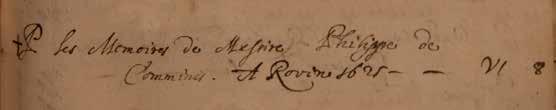 +P les Memoires de Messire Philippe de
Commines. A Roven 1625 - - VI 8